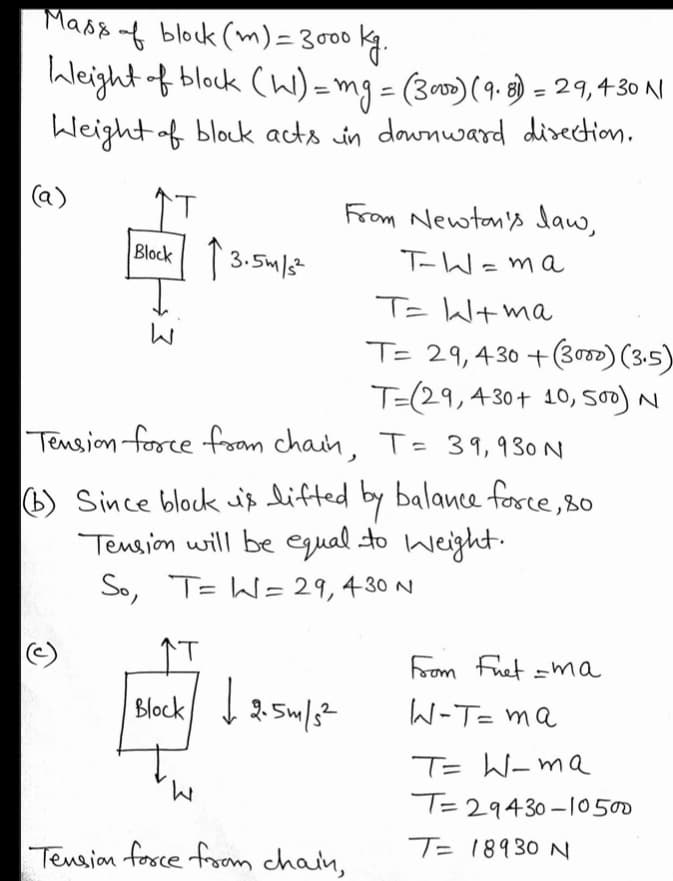 Mass of block (m) = 3000 kg.
Weight of block (W) = mg = (3000)(9.81) = 29,430 N
Weight of block acts in downward direction.
(a)
↑T
Block ↑ 3.5m/s²
↓
W
From Newton's law,
T-W = ma
T= W+ma
T= 29,430 + (3000)(3.5)
T=(29,430+ 10,500) N
Tension force from chain, T= 39,930 N
(b) Since block is lifted by balance force, so
Tension will be equal to weight.
So, T= W= 29,430 N
(c)
↑T
Block ↓ 2.5m/s²
↓
W
From Fnet =ma
W-T= ma
T= W-ma
T= 29430-10500
T= 18930 N
Tension force from chain,